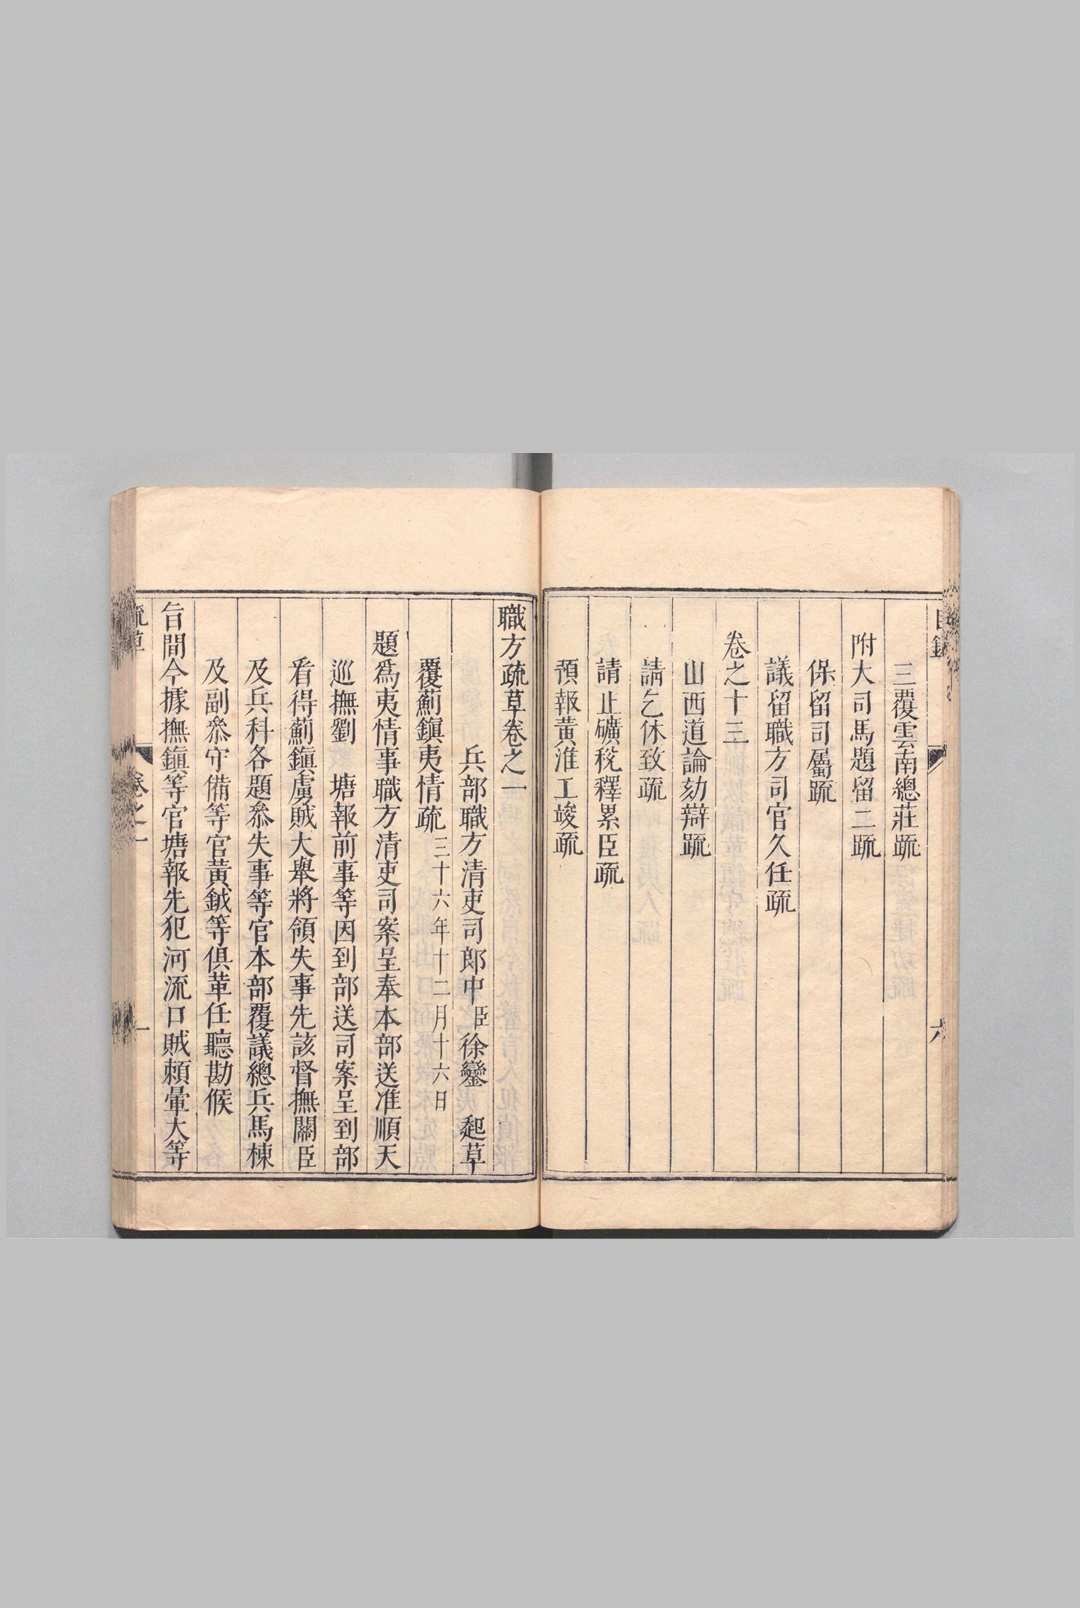 三覆雲南總莊疏
附大司馬題留二疏
保留司屬疏
議留職方司官久任疏
卷之十三
山西道論劾辯疏
請乞休致疏
請止礦稅釋累臣疏
預報黃淮工竣疏
職方疏草卷之一
兵部職方清吏司郎中臣徐鑾 起草
覆薊鎮夷情疏三十六年十二月十六日
題爲夷情事職方清吏司案呈奉本部送准順天
巡撫劉 塘報前事等因到部送司案呈到部
看得薊鎮虜賊大舉將領失事先該督撫關臣
及兵科各題叅失事等官本部覆議總兵馬棟
及副叅守備等官黃鉞等俱革任聽勘候
旨間今據撫鎮等官塘報先犯河流口賊賴暈大等
疏草
卷之一
一